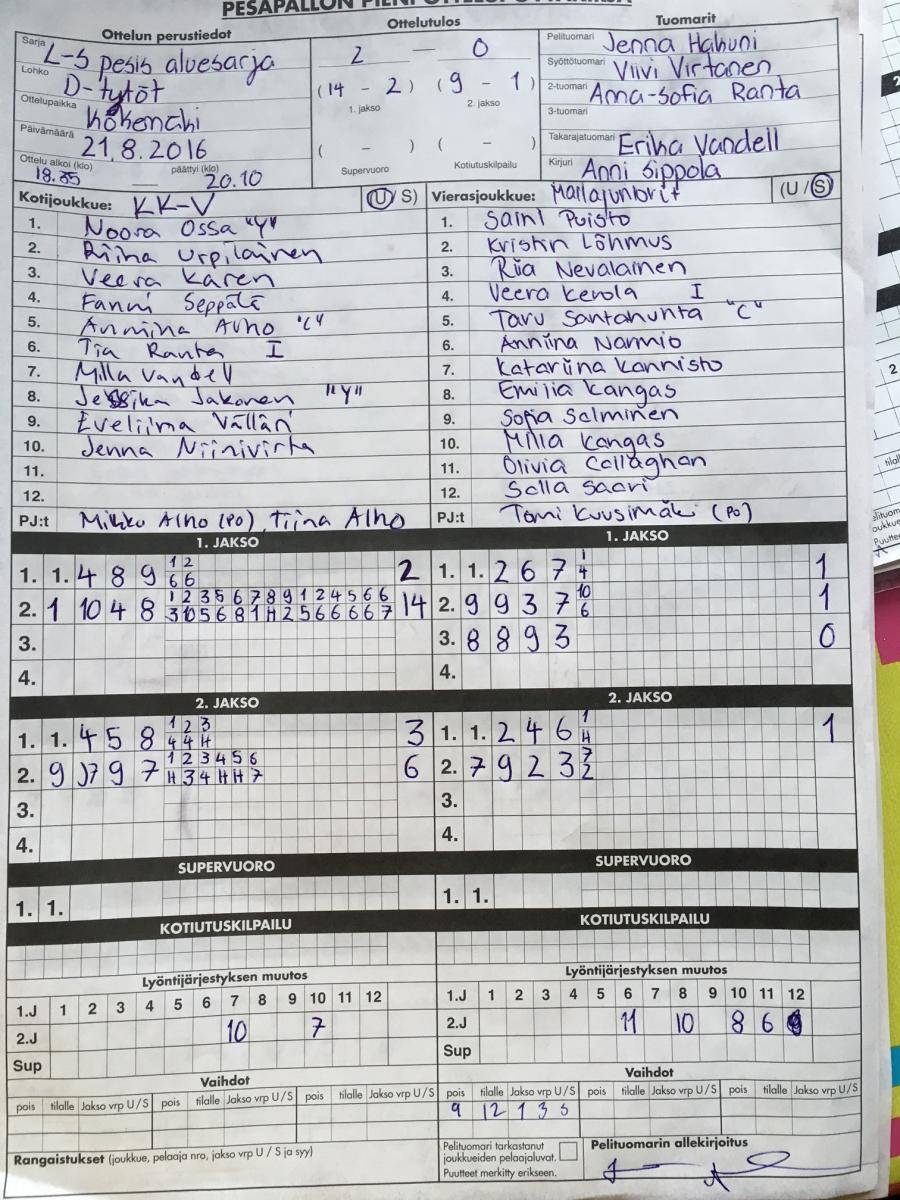 Ottelun perustiedot
Ottelutulos
Tuomarit
Sarja L-S pesis aluesarja
Lohko D-tytöt
Ottelupaikka Kokemäki
Päivämäärä 21.8.2016
Ottelu alkoi (klo) päättyi (klo)
18.35 — 20.10
2 — 0
(14 - 2) (9 - 1)
1. jakso 2. jakso
( - ) ( - )
Supervuoro Kotiutuskilpailu
Pelituomari Jenna Hahuni
Syöttötuomari Viivi Virtanen
2-tuomari Anna-Sofia Ranta
3-tuomari
Takarajatuomari Erika Vandell
Kirjuri Anni Sippola
Kotijoukkue: KK-V (U/S)
1. Noora Ossa "Y"
2. Riina Urpilainen
3. Veera Karen
4. Fanni Seppälä
5. Annina Alho "C"
6. Tia Ranta I
7. Milla Vandell
8. Jessika Jakonen "Y"
9. Eveliina
10. Jenna Niinivirta
11.
12.
PJ:t Mikko Alho (PO), Tiina Alho
Vierasjoukkue: Mailajuniorit (U/S)
1. Saini Puisto
2. Kristin Lõhmus
3. Riia Nevalainen
4. Veera Kerola I
5. Taru Santahunta "C"
6. Anniina Narmio
7. Katariina Kannisto
8. Emilia Kangas
9. Sofia Salminen
10. Milla Kangas
11. Olivia Callaghan
12. Salla Saari
PJ:t Tomi Kuusimäki (PO)
1. JAKSO
1. 1. 4 8 9 1 2 2
6 6
2. 1 10 4 8 1 2 3 5 6 7 8 9 1 2 4 5 6 6 14
3 10 5 6 8 1 H 2 5 6 6 6 6 7
3.
4.
1. JAKSO
1. 1. 2 6 7 1 1
4
2. 9 9 3 7 10 1
6
3. 8 8 9 3 0
4.
2. JAKSO
1. 1. 4 5 8 1 2 3 3
4 4 H
2. 9 9 7 1 2 3 4 5 6 6
H 3 4 H H 7
3.
4.
2. JAKSO
1. 1. 2 4 6 1 1
H
2. 7 9 2 3 7
2
3.
4.
SUPERVUORO
1. 1.
SUPERVUORO
1. 1.
KOTIUTUSKILPAILU
KOTIUTUSKILPAILU
Lyöntijärjestyksen muutos
1.J 1 2 3 4 5 6 7 8 9 10 11 12
2.J 10 7
Sup
Lyöntijärjestyksen muutos
1.J 1 2 3 4 5 6 7 8 9 10 11 12
2.J 11 10 8 6
Sup
Vaihdot
pois tilalle Jakso vrp U/S pois tilalle Jakso vrp U/S pois tilalle Jakso vrp U/S
Vaihdot
pois tilalle Jakso vrp U/S pois tilalle Jakso vrp U/S pois tilalle Jakso vrp U/S
9 12 1 3 S
Rangaistukset (joukkue, pelaaja nro, jakso vrp U/S ja syy)
Pelituomari tarkastanut
joukkueiden pelaajaluvat.
Puutteet merkitty erikseen.
Pelituomarin allekirjoitus